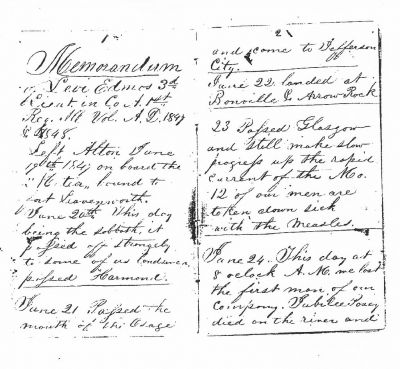 1
Memorandum
of Levi Edmos 3rd
Lieut in Co A. 1st
Reg. Ill Vol. A.D. 1847
& 1848.
Left Alton June
19th 1847 on board the
bound to
Fort Leavenworth.
June 20th This day
being the sobbath, it
passed off strangely
to some of us landsmen
passed Harmond.
June 21 Passed the
mouth of the Osage
2
and come to Jefferson
City.
June 22 landed at
Bonville & Arrow Rock
23 Passed Glasgow
and still make slow
progress up the rapid
current of the Mo.
12 of our men are
token down sick
with the Measles.
June 24. This day at
8 oclock A.M. we lost
the first man of our
Compony. Jubilee Posey
died on the river and